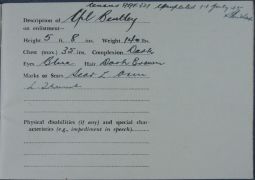 Description of Spl Bentley
on enlistment—
Height 5 ft. 8 ins. Weight 140 lbs.
Chest (max.) 35 ins. Complexion Dark
Eyes Blue Hair Dark Brown
Marks or Scars Scar L. arm
L. Thumb
Physical disabilities (if any) and special char-
acteristics (e.g., impediment in speech)